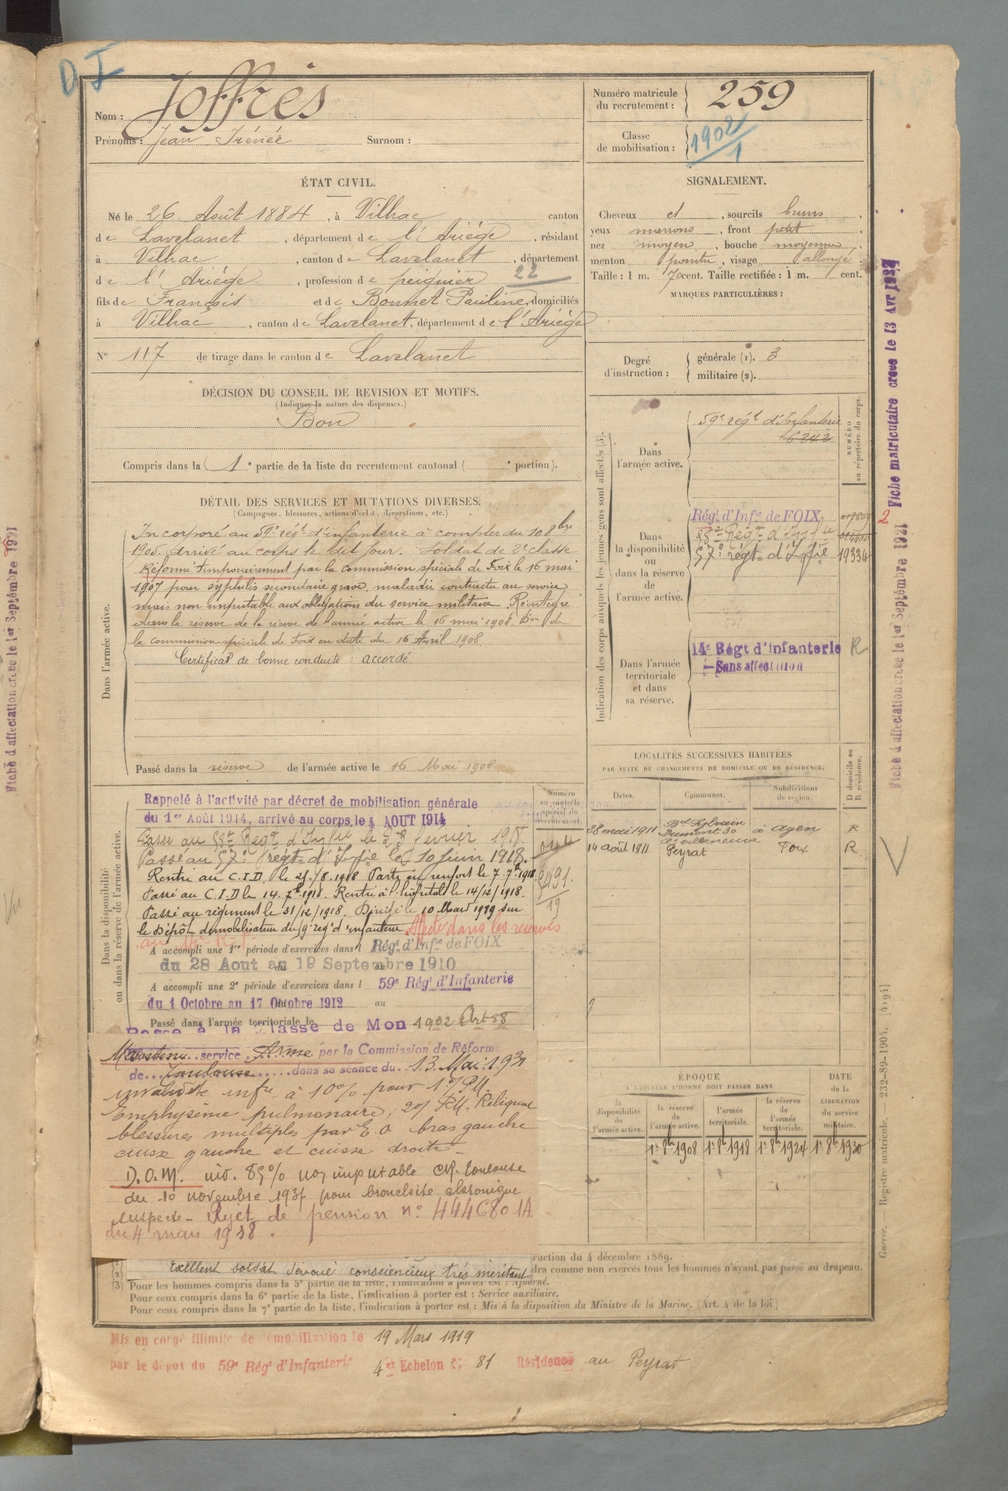 D. I
Nom : Joffrès
Prénoms : Jean Irénée Surnom :
Numéro matricule du recrutement : 259
Classe de mobilisation : 1902/1
ÉTAT CIVIL.
Né le 26 Août 1884, à Vilhac canton
de Lavelanet, département de l'Ariège, résidant
à Vilhac, canton de Lavelanet, département
de l'Ariège, profession de peignier 22
fils de François et de Bonnet Pauline, domiciliés
à Vilhac, canton de Lavelanet, département de l'Ariège
N° 117 de tirage dans le canton de Lavelanet
SIGNALEMENT.
Cheveux et, sourcils bruns,
yeux marrons, front petit
nez moyen, bouche moyenne,
menton pointu, visage allongé,
Taille : 1 m. 70 cent. Taille rectifiée : 1 m. cent.
MARQUES PARTICULIÈRES :
Degré d'instruction : générale (1). 3
militaire (2).
DÉCISION DU CONSEIL DE REVISION ET MOTIFS.
(Indiquer la nature des dispenses.)
Bon
Compris dans la 1e partie de la liste du recrutement cantonal ( e portion).
DÉTAIL DES SERVICES ET MUTATIONS DIVERSES.
(Campagnes, blessures, actions d'éclat, décorations, etc.)
Dans l'armée active.
Incorporé au 59e régt d'infanterie à compter du 10 8bre
1905. Arrivé au corps le dit jour. Soldat de 2e classe
Réformé temporairement par la commission spéciale de Foix le 16 mai
1907 pour syphilis secondaire grave, maladie contractée au service
mais non imputable aux obligations du service militaire. Réintégré
dans la réserve de l'armée active le 16 mai 1908. Don de
la Commission spéciale de Foix en date du 16 Avril 1908
Certificat de bonne conduite : accordé
Passé dans la réserve de l'armée active le 16 Mai 1908
Indication des corps auxquels les jeunes gens sont affectés (3).
NUMÉRO au répertoire du corps.
Dans l'armée active.
59e régt d'Infanterie
6242
Dans la disponibilité ou dans la réserve de l'armée active.
Régt d'Infie de FOIX
88e Régt d'Infie
57e régt d'Infie 19334
Dans l'armée territoriale et dans sa réserve.
14e Régt d'Infanterie R
Sans affectation
LOCALITÉS SUCCESSIVES HABITÉES
PAR SUITE DE CHANGEMENTS DE DOMICILE OU DE RÉSIDENCE.
Dates. Communes. Subdivisions de région. D domicile ou R résidence.
28 mai 1911 Bd Sylvain Dumont 30 à Agen R
14 août 1911 Peyrat Foix R
Dans la disponibilité ou dans la réserve de l'armée active.
Rappelé à l'activité par décret de mobilisation générale
du 1er Août 1914, arrivé au corps le 4 AOUT 1914
Passé au 88e Régt d'Infie le février 1918
Passé au 57e régt d'Infie le 10 juin 1918.
Rentré au C.I.D. le 25/8.1918 Parti en renfort le 7.7bre 1918
Passé au C.I.D le 14.7bre 1918. Rentré à l'hôpital le 14/12/1918.
Passé au régiment le 31/12/1918. Dirigé le 10 Mars 1919 sur
le Dépôt démobilisateur du 9 régt d'infanterie Affecté dans les réserves
A accompli une 1re période d'exercices dans l Régt d'Infie de FOIX
du 28 Aout au 19 Septembre 1910
A accompli une 2e période d'exercices dans l 59e Régt d'Infanterie
du 1 Octobre au 17 Octobre 1912 au
Passé dans l'armée territoriale le
Passé à la classe de Mon 1902 Art 58
Maintenu service Armé par la Commission de Réforme
de Toulouse dans sa séance du 13 Mai 193
invalidité infre à 10% pour 1°/ RM.
Emphysème pulmonaire, 2°/ RM. Reliquat
blessures multiples par E.O bras gauche
cuisse gauche et cuisse droite.
D.O.M. inv. 85% non imputable CR Toulouse
du 10 novembre 1937 pour bronchite chronique
suspecte. Rejet de pension n° 444C801A
du 4 mars 1938.
ÉPOQUE
À LAQUELLE L'HOMME DOIT PASSER DANS
la disponibilité de l'armée active. la réserve de l'armée active. l'armée territoriale. la réserve de l'armée territoriale. DATE de la LIBÉRATION du service militaire.
1er 8bre 1908 1er 8bre 1918 1er 8bre 1924 1er 8bre 1930
ruction du 4 décembre 1889.
Exellent soldat dévoué consciencieux très méritant
dra comme non exercés tous les hommes n'ayant pas passé au drapeau.
(3) Pour les hommes compris dans la 5e partie de la liste, l'indication à porter est : Ajourné.
Pour ceux compris dans la 6e partie de la liste, l'indication à porter est : Service auxiliaire.
Pour ceux compris dans la 7e partie de la liste, l'indication à porter est : Mis à la disposition du Ministre de la Marine. (Art. 4 de la loi.)
Mis en congé illimité de démobilisation le 19 Mars 1919
par le dépôt du 59e Régt d'Infanterie 4e Echelon N° 81 Résidence au Peyrat
Fiche matriculaire créée le 13 Avr
Fiche d'affectation créée le 1er Septembre 1921
Fiche d'affectation créée le 1er Septembre 1921
Guerre. Registre matricule. — 232-89-1904. [4194]